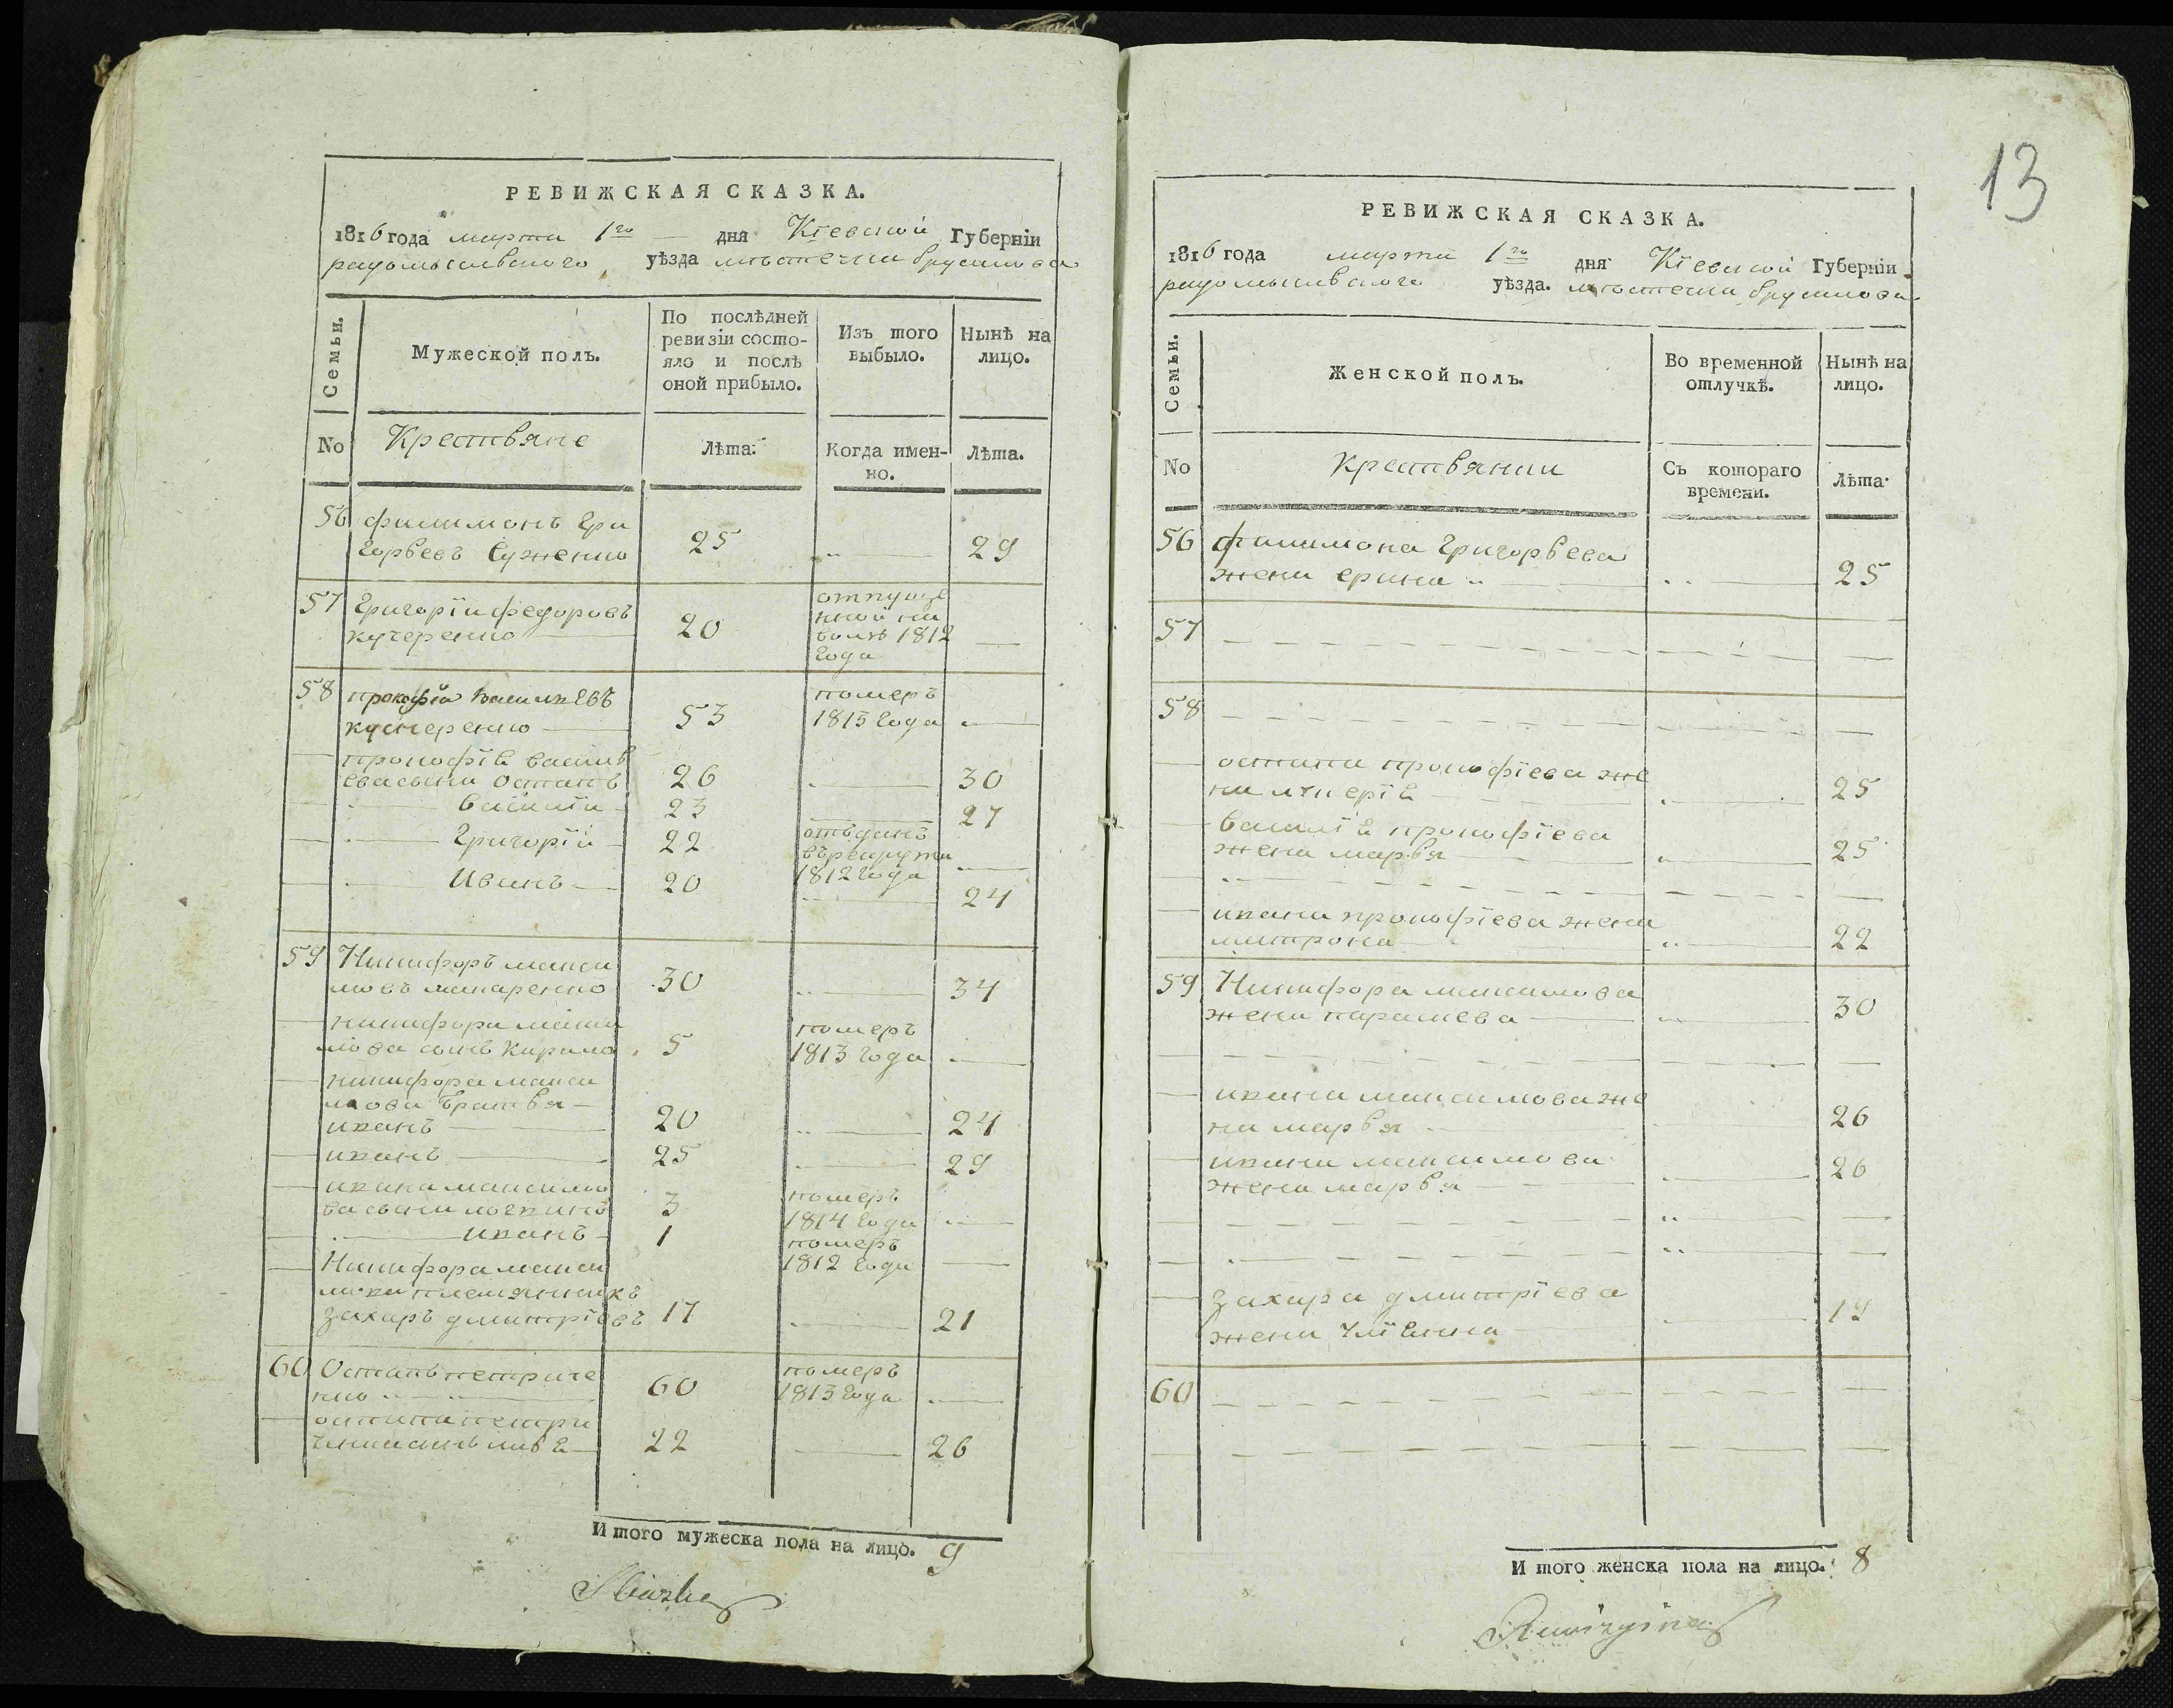 13
РЕВИЖСКАЯ СКАЗКА.
1816 года марта 1го дня Кіевской Губерніи
радомысльского уѣзда мѣстечка брусилова
Семьи.
Мужеской полъ.
По послѣдней ревизіи состояло и послѣ оной прибыло.
Изъ того выбыло.
Нынѣ на лицо.
No
Крестьяне
Лѣта.
Когда именно.
Лѣта.
56 филимонъ Гри
горьевъ 25 29
57 Григорій федоровъ
кучеренко 20
отпуще
нной на
волю 1812
года
58 прокофій Василіевъ
кучеренко 53
померъ
1815 года
прокофія василь
ева сыни Остапъ 26 30
Василій 23 27
Григорій 22
отъданъ
въ рекруты
1812 года
Иванъ 20 24
59 Никифоръ макси
мовъ макаренко 30 34
никифора макси
мова сынъ Кирило 5
померъ
1813 года
никифора макси
мова братья
иванъ 20 24
иванъ 25 29
ивана максимо
ва сыни 3
померъ
1814 года
иванъ 1
померъ
1812 года
Никифора макси
мова племянникъ
захаръ дмитріевъ 17 21
60 Остапъ петриче
нко 60
померъ
1813 года
остапа петри
ченка синъ 22 26
Итого мужеска пола на лицо. 9
РЕВИЖСКАЯ СКАЗКА.
1816 года марта 1го дня Кіевской Губерніи
радомысльского уѣзда. мѣстечка брусилова
Семьи.
Женской полъ.
Во временной отлучкѣ.
Нынѣ на лицо.
No
Крестьянки
Съ котораго времени.
Лѣта.
56 филимона Григорьева
жена ерина 25
57
58
остапа прокофіева же
на 25
василія прокофіева
жена марья 25
ивана прокофіева жена
матрона 22
59 Никифора максимова
жена параскева 30
ивана максимова же
на марья 26
ивана максимова
жена марья 26
захара дмитріева
жена 19
60
Итого женска пола на лицо. 8